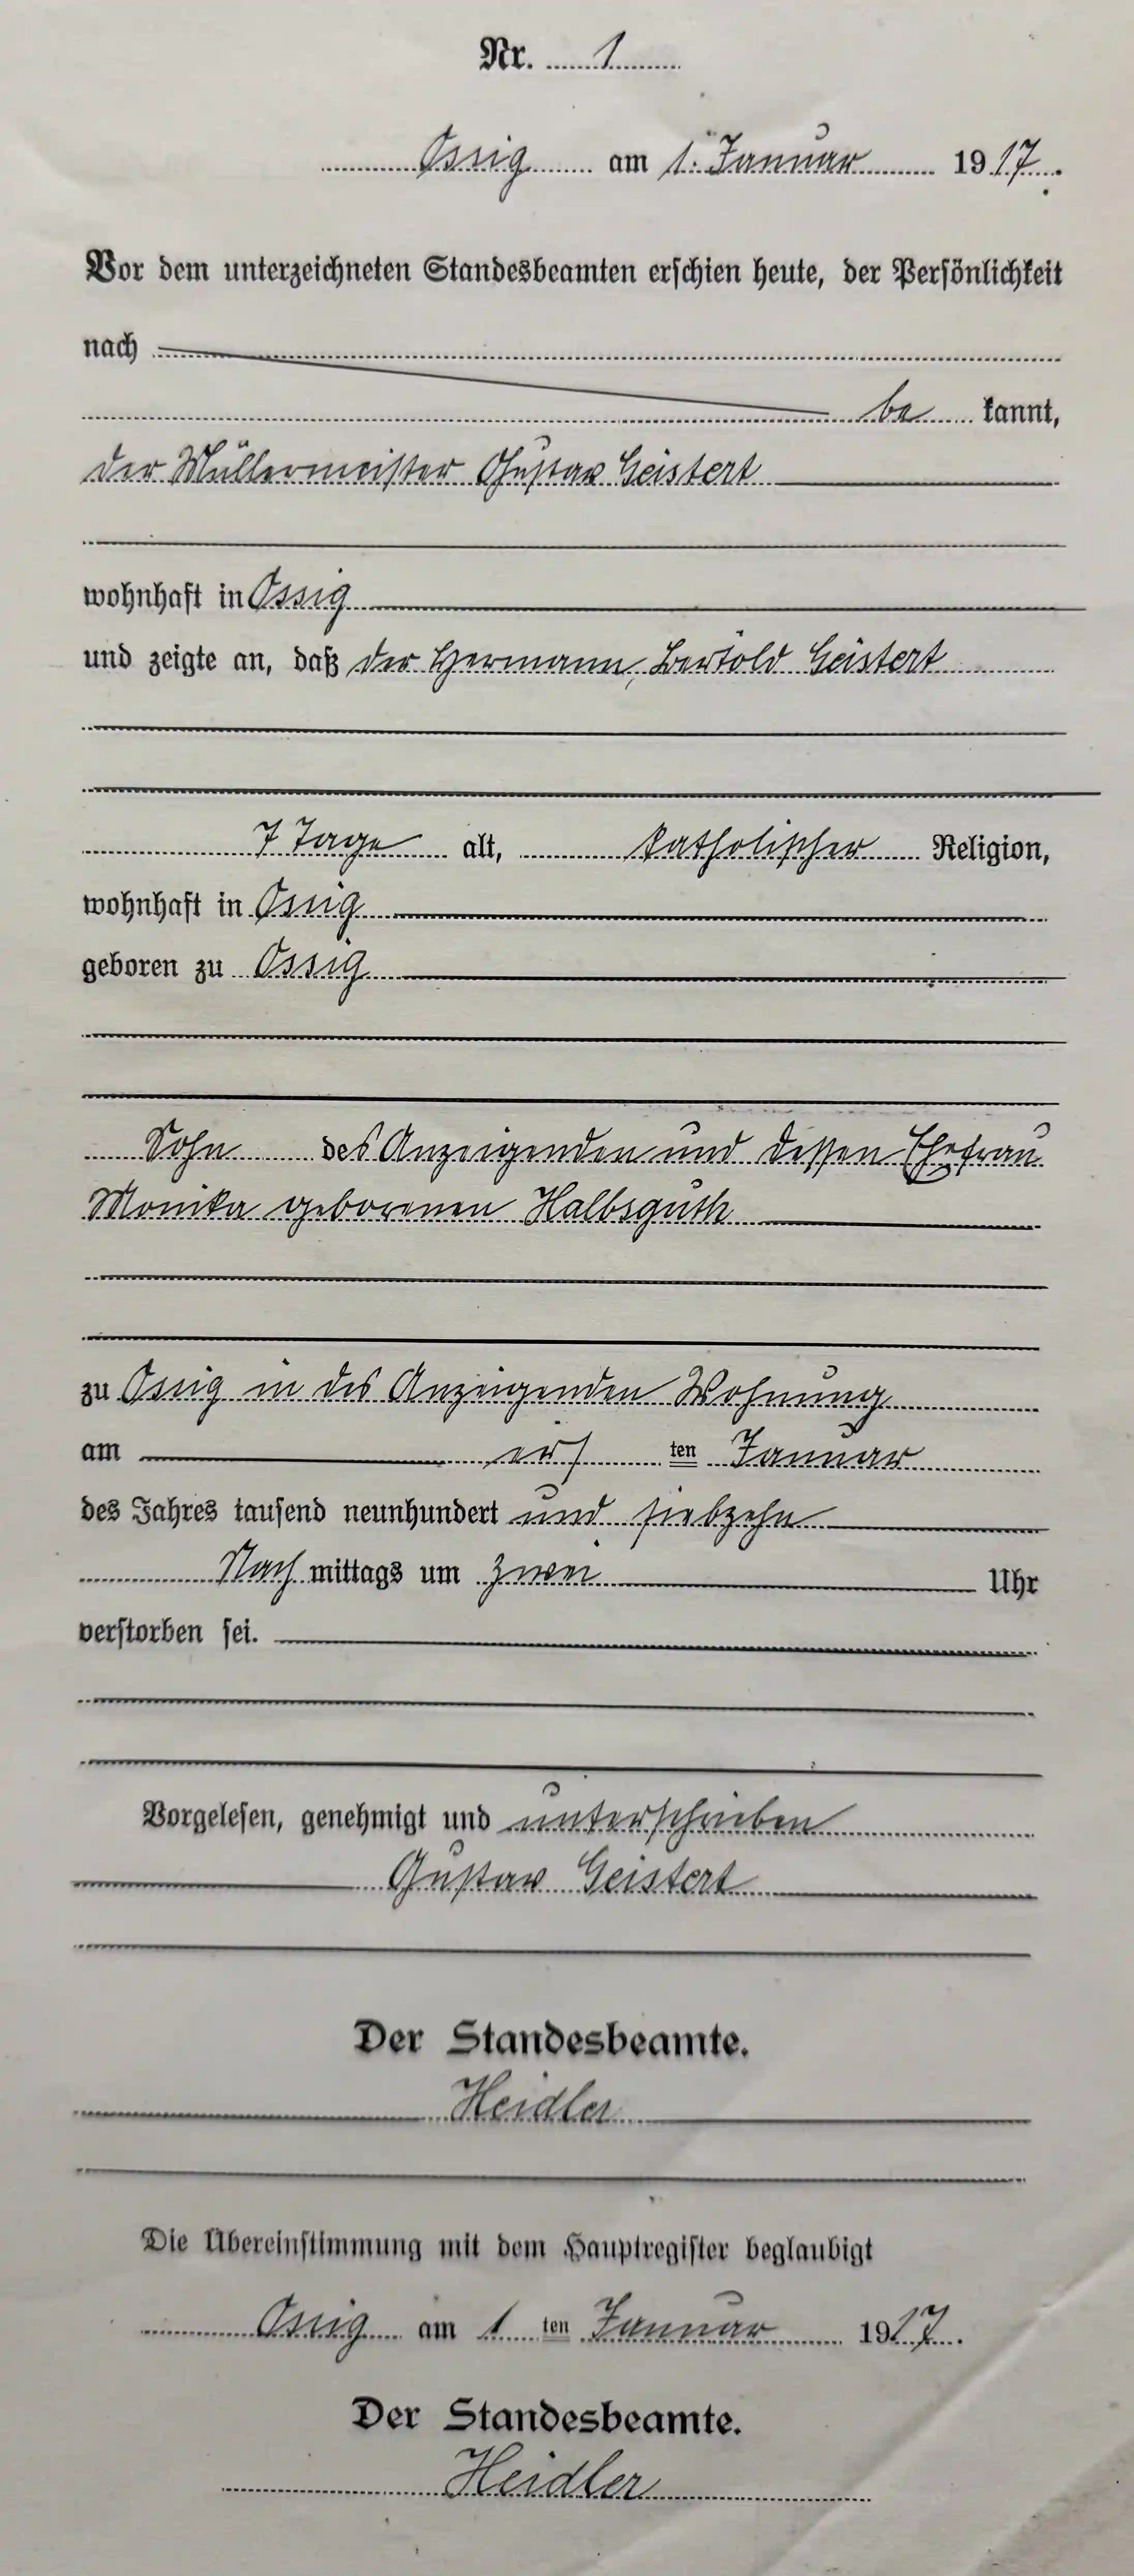 Nr. 1
Ossig am 1. Januar 1917.
Vor dem unterzeichneten Standesbeamten erschien heute, der Persönlichkeit
nach
be kannt,
der Müllermeister Gustav Geistert
wohnhaft in Ossig
und zeigte an, daß der Hermann, Bertold Geistert
7 Tage alt, katholischer Religion,
wohnhaft in Ossig
geboren zu Ossig
Sohn des Anzeigenden und dessen Ehefrau
Monika geborenen Halbsguth
zu Ossig in des Anzeigenden Wohnung
am ers ten Januar
des Jahres tausend neunhundert und siebzehn
Nach mittags um zwei Uhr
verstorben sei.
Vorgelesen, genehmigt und unterschrieben
Gustav Geistert
Der Standesbeamte.
Heidler
Die Übereinstimmung mit dem Hauptregister beglaubigt
Ossig am 1 ten Januar 1917.
Der Standesbeamte.
Heidler